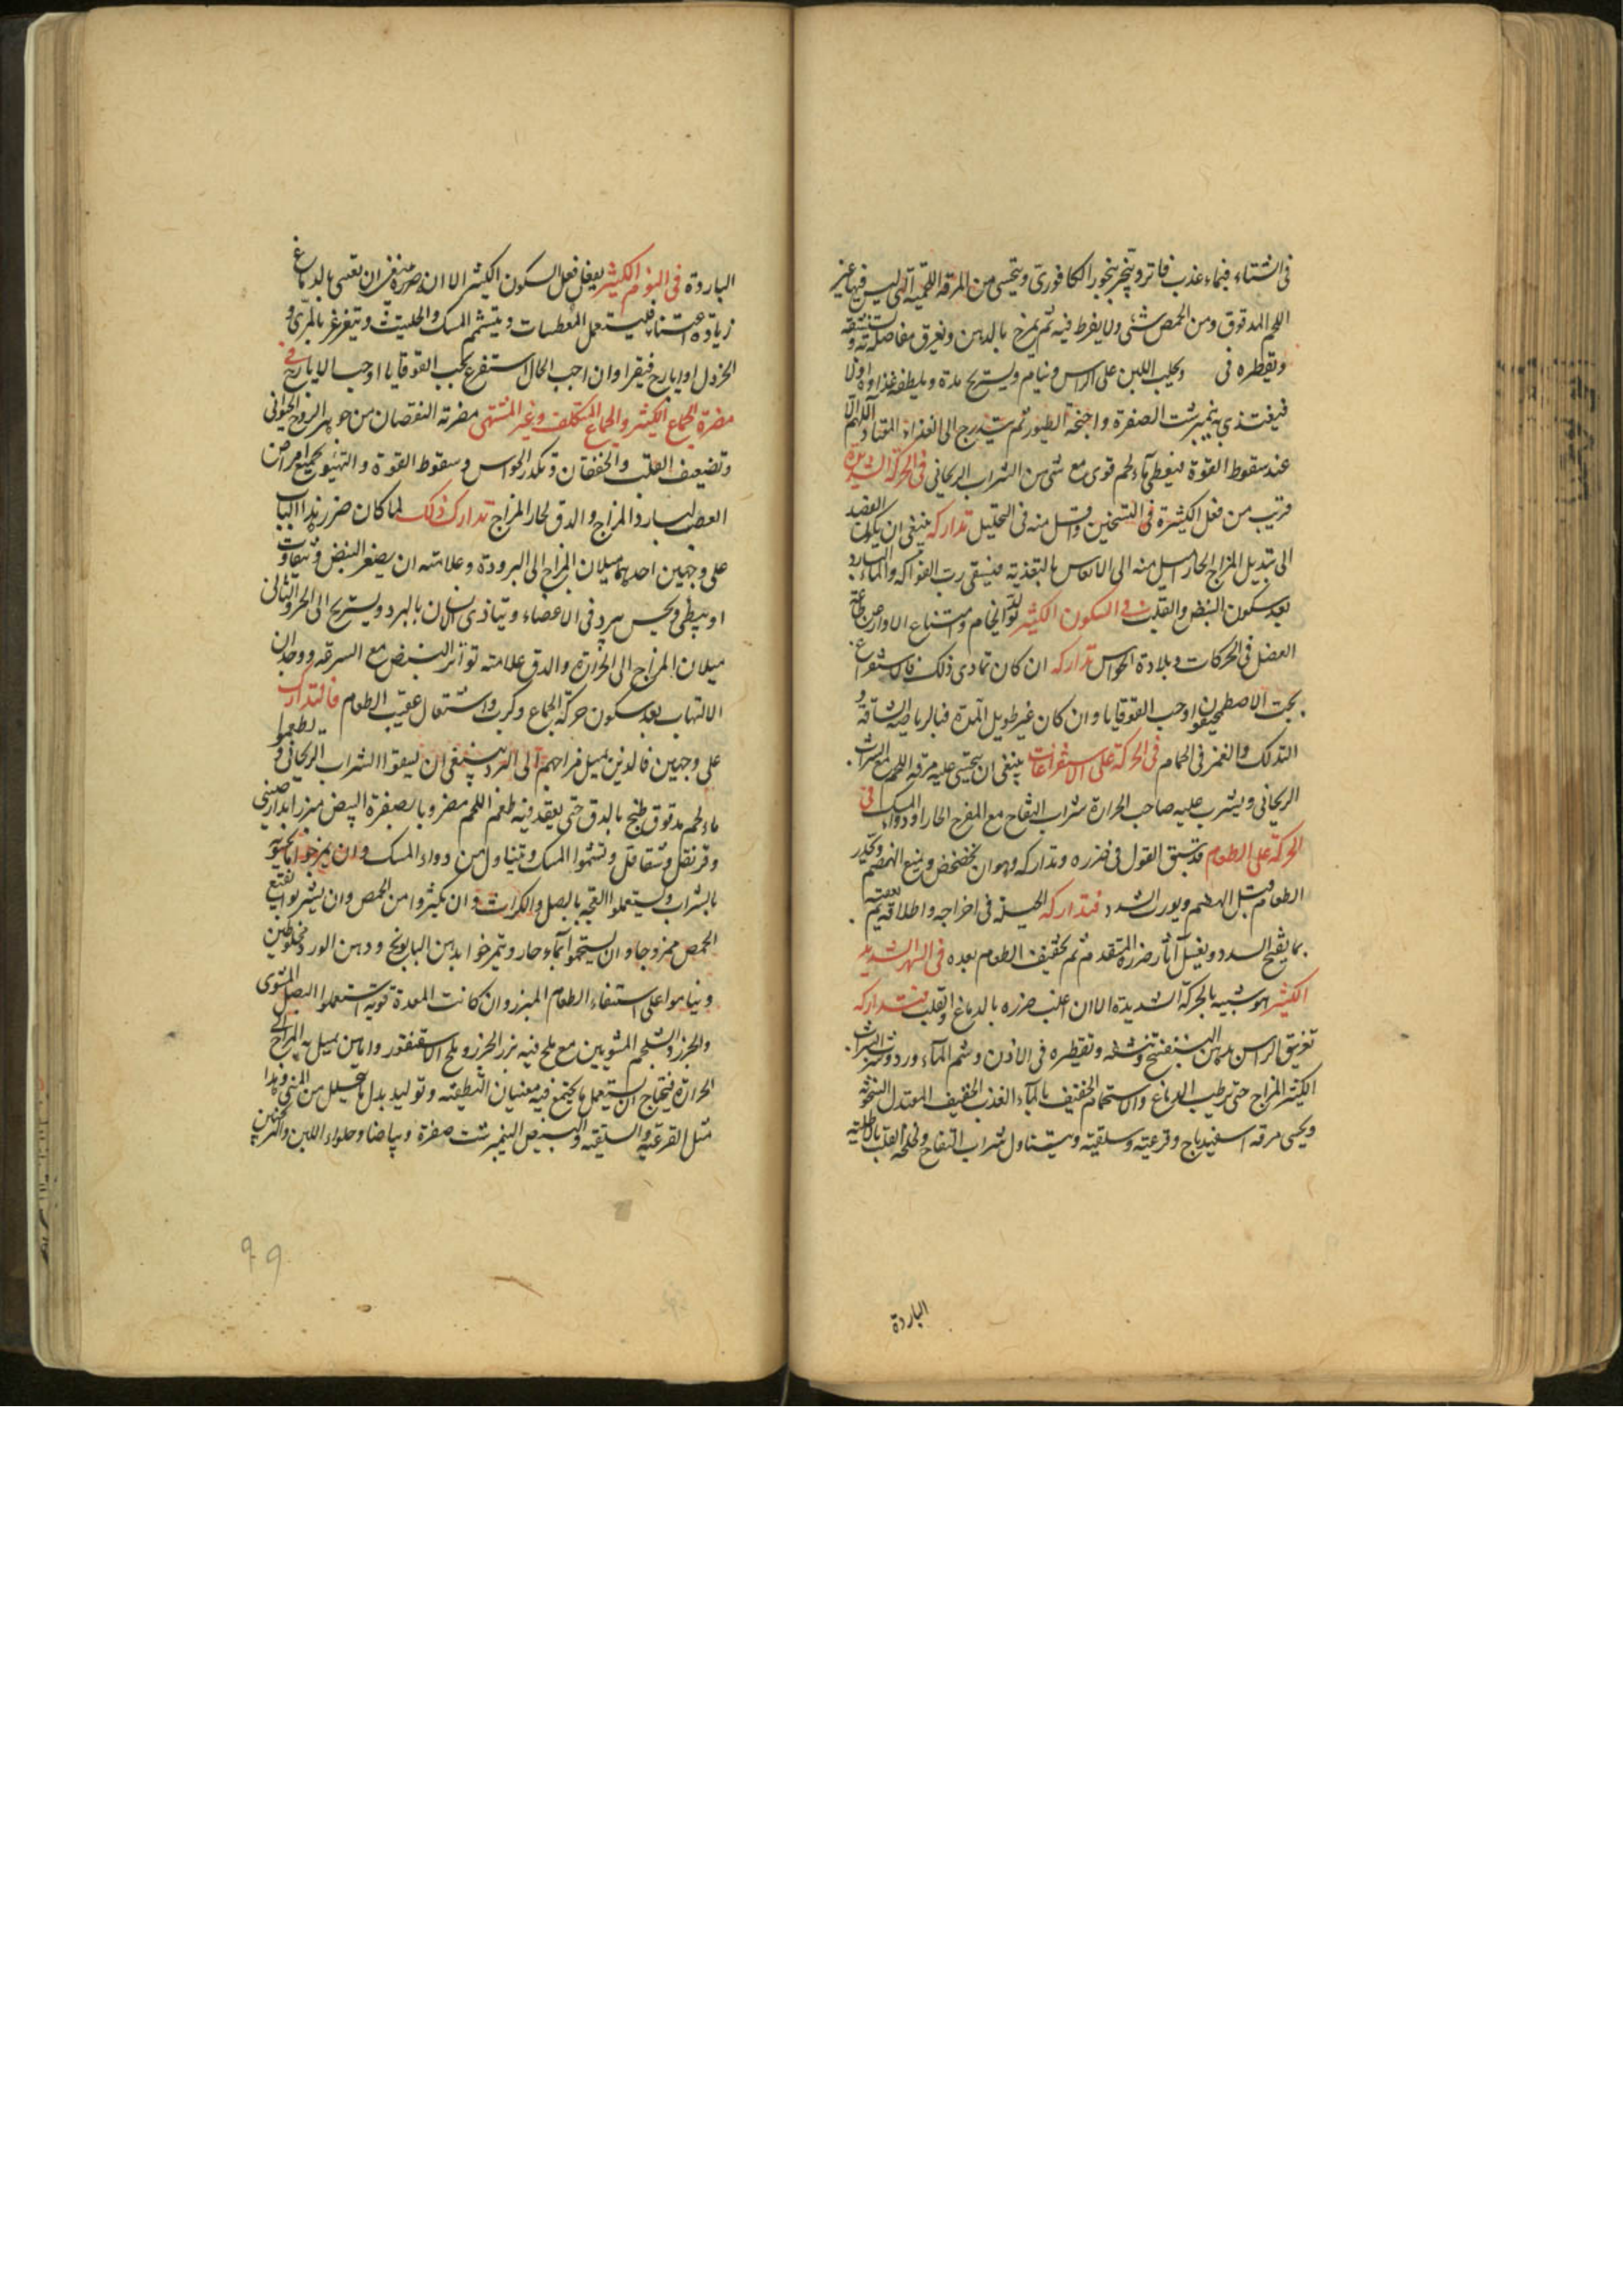 فى الشتاء فبماء عذب فاتر ويتبخر ببخور الكافورى ويتحسى من المرقة اللحمية التى ليس فيها غير
اللحم المدقوق ومن الحمص شئى ولا يفرط فيه ثم يمرخ بالدهن ويغرق مفاصله به و
وتقطره فى وبحليب اللبن على الراس وينام ويستريح مدة ويلطف غذاوه اولا
فيغتذى بنيمبرشت الصفرة واجنحة الطيور ثم يتدرج الى الغذاء المعتاد اللهم الا
عند سقوط القوة فيعطى ماء لحم قوى مع شئ من الشراب الريحانى فى الحركة الشديدة
قريب من فعل الكثيرة فى التسخين واقل منه فى التحليل تداركه ينبغى ان يكون القصد
الى تبديل المزاج الحار اميل منه الى الانعاش بالتغذية فيسقى رب الفواكه والماء البارد
بعد سكون النبض والقلب فى السكون الكثير تولد الخام وامتناع الاوامر من طاعة
العضل فى الحركات وبلادة الحواس تداركه ان كان تمادى ذلك فالاستفراغ
بحب الاصطمحيقون او حب القوقايا وان كان غير طويل المدة فبالرياضة الشاقة و
التدلك والغمز فى الحمام فى الحركة على الاستفراغات ينبغى ان يتحسى عليه مرقة اللحم مع الشراب
الريحانى ويشرب عليه صاحب الحرارة شراب التفاح مع المفرح الحار او دواء المسك فى
الحركة على الطعام قد سبق القول فى ضرره وتداركه وهو ان يخضخض ويمنع الهضم ويحدر
الطعام قبل الهضم ويورث السدد فتداركه الحيلة فى اخراجه واطلاقه ثم
بما يفتح السدد ويغسل آثار ضرره المتقدم ثم تخفيف الطعام بعده فى السهر الشديد
الكثير هو شبيه بالحركة الشديدة الا ان اغلب ضرره بالدماغ والقلب فتداركه
تغريق الراس بدهن البنفسج وتنشقه وتقطيره فى الاذن وشم الماء ورد وشرب الشراب
الكثير المزاج حتى يرطب الدماغ والاستحمام الخفيف بالماء العذب الخفيف المعتدل السخونة
ويحسى مرقة اسفيدباج وقرعية وسلقية ويتناول شراب التفاح القلب بالاطلية
الباردة
الباردة فى النوم الكثير يفعل فعل السكون الكثير الا ان ضرره فينبغى ان يعتنى بالدماغ
زيادة اعتناء فليستعمل المعطسات ويتشمم المسك والحلتيت ويتغرغر بالمرى و
الخردل او ايارج فيقرا وان اوجب الحال استفرغ بحب القوقايا او حب الايارج فى
مضرة الجماع الكثير والجماع المتكلف وغير المشتهى مضرته النقصان من جوهر الروح الحيوانى
وتضعيف القلب والخفقان وتكدر الحواس وسقوط القوة والتهيؤ لجميع امراض
العصب لبارد المزاج والدق لحار المزاج تدارك ذلك لما كان ضرر هذا الباب
على وجهين احدهما ميلان المزاج الى البرودة وعلامته ان يصغر النبض ويتفاوت
او يبطئ ويحس ببرد فى الاعضاء ويتاذى الانسان بالبرد ويستريح الى الحر والثانى
ميلان المزاج الى الحرارة والدق علامته تواتر النبض مع السرعة ووجدان
الالتهاب بعد سكون حركة الجماع وكرب واشتعال عقيب الطعام فالتدارك
على وجهين فالذين يميل مزاجهم الى البرد ينبغى ان يسقوا الشراب الريحانى و يطعموا
ماء لحم مدقوق طبخ بالدق حتى يعقد فيه طعم اللحم مضروبا بصفرة البيض مبزرا بدارصينى
وقرنفل وشقاقل ويشموا المسك ويتناول من دواء المسك وان يمزجوا
بالشراب ويستعملوا العجة بالبصل والكراث وان يكثروا من الحمص وان يشربوا نقيع
الحمص ممزوجا وان يستحموا بماء حار ويتمرخوا بدهن البابونج ودهن الورد مخلوطين
ويناموا على استيفاء الطعام المبزر وان كانت المعدة قوية استعملوا البصل المشوى
والجزر والشلجم المشويين مع ملح فيه بزر الجزر وملح الاسقنقور واما من يميل به المزاج الى
الحرارة فيحتاج ان يستعمل ما يجتمع فيه معنيان التطفئة وتوليد بدل ما تحلل من المنى وهذا
مثل القرعية والسلقية والبيض النيمبرشت صفرة وبياضا وحلواء اللبن والترنجبين
99